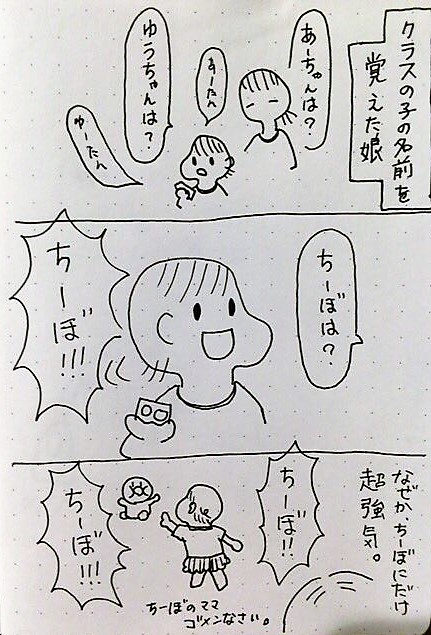 クラスの子の名前を
覚えた娘
あーちゃんは?
あーたん
ゆうちゃんは?
ゆーたん
ちーぼは?
ちーぼ!!!
なぜか、ちーぼにだけ
超強気。
ちーぼ!!
ちーぼ!!!
ちーぼのママ
ゴメンなさい。